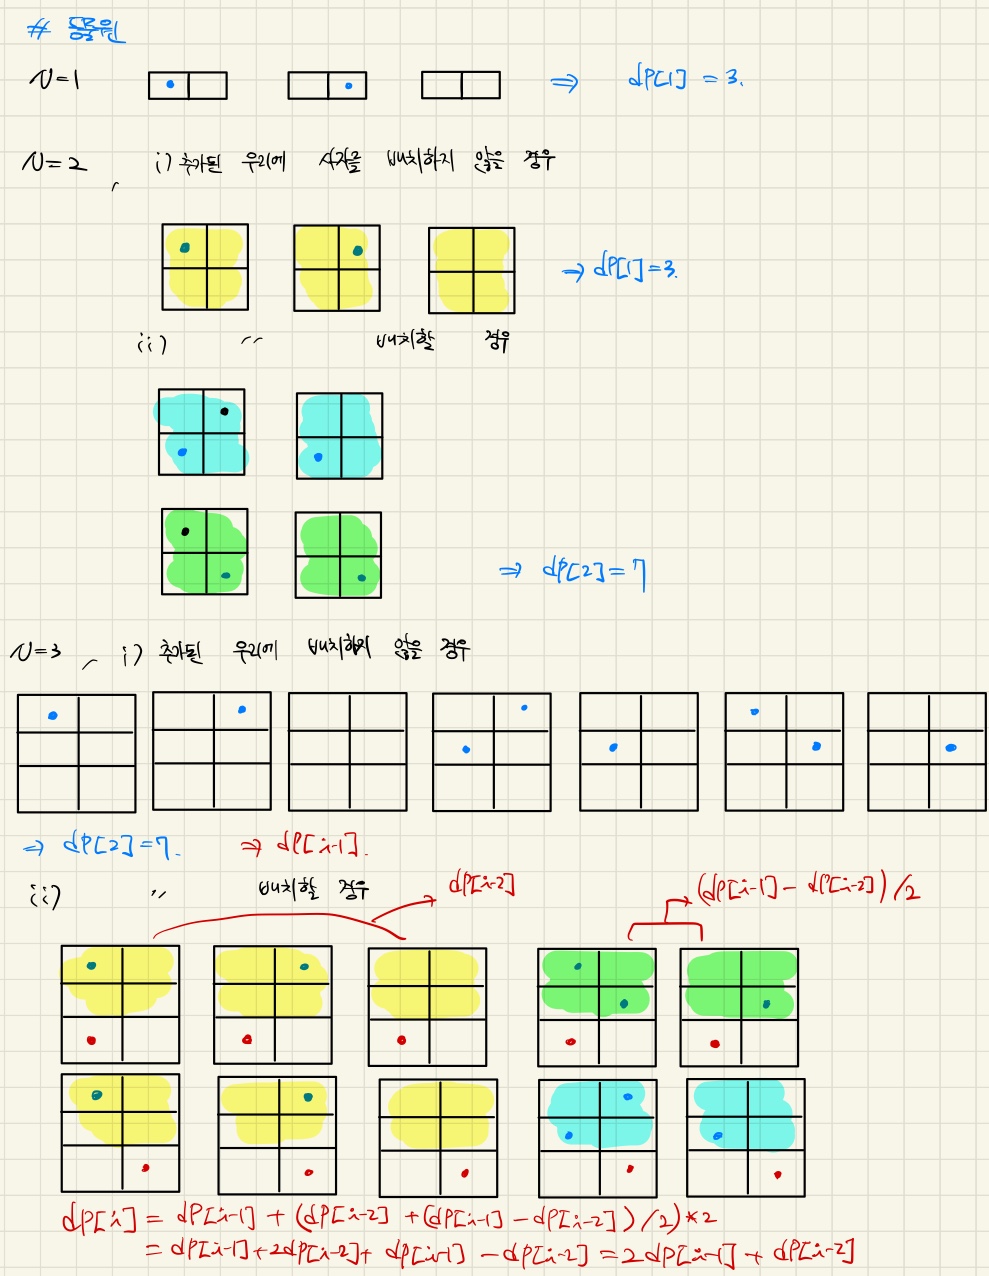 # 동물원
N=1 ⇒ dp[1] = 3.
N=2, i) 추가된 우리에 사자를 배치하지 않을 경우
⇒ dp[1]=3.
ii) 〃 배치할 경우
⇒ dp[2]=7
N=3, i) 추가된 우리에 배치하지 않을 경우
⇒ dp[2]=7. ⇒ dp[i-1].
ii) 〃 배치할 경우 dp[i-2] (dp[i-1] - dp[i-2])/2
dp[i] = dp[i-1] + (dp[i-2] + (dp[i-1] - dp[i-2])/2)*2
= dp[i-1]+2dp[i-2]+ dp[i-1] - dp[i-2] = 2dp[i-1] + dp[i-2]